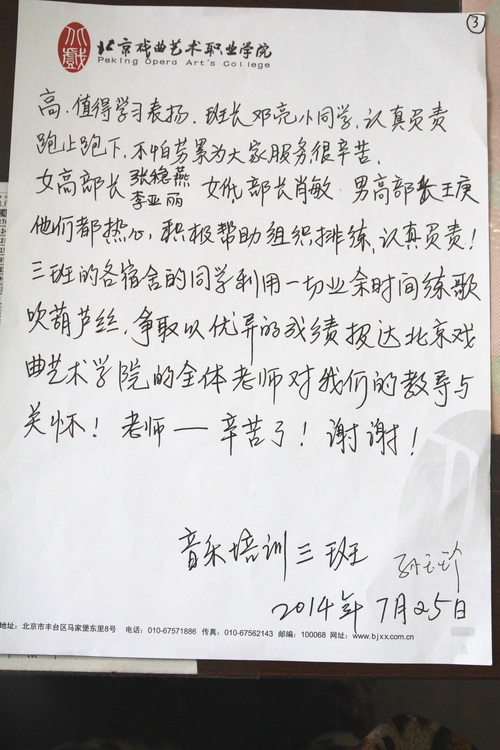 ③
北戏
北京戏曲艺术职业学院
Peking Opera Art's College
高、值得学习表扬。班长邓亮小同学,认真负责
跑上跑下,不怕劳累为大家服务很辛苦。
女高部长 张稳燕 李亚丽 女低部长肖敏 男高部长王庚
他们都热心,积极帮助组织排练,认真负责!
三班的各宿舍的同学利用一切业余时间练歌
吹葫芦丝,争取以优异的成绩报达北京戏
曲艺术学院的全体老师对我们的教导与
关怀!老师——辛苦了!谢谢!
音乐培训三班
2014年7月25日
地址:北京市丰台区马家堡东里8号 电话:010-67571886 传真:010-67562143 邮编:100068 网址:www.bjxx.com.cn